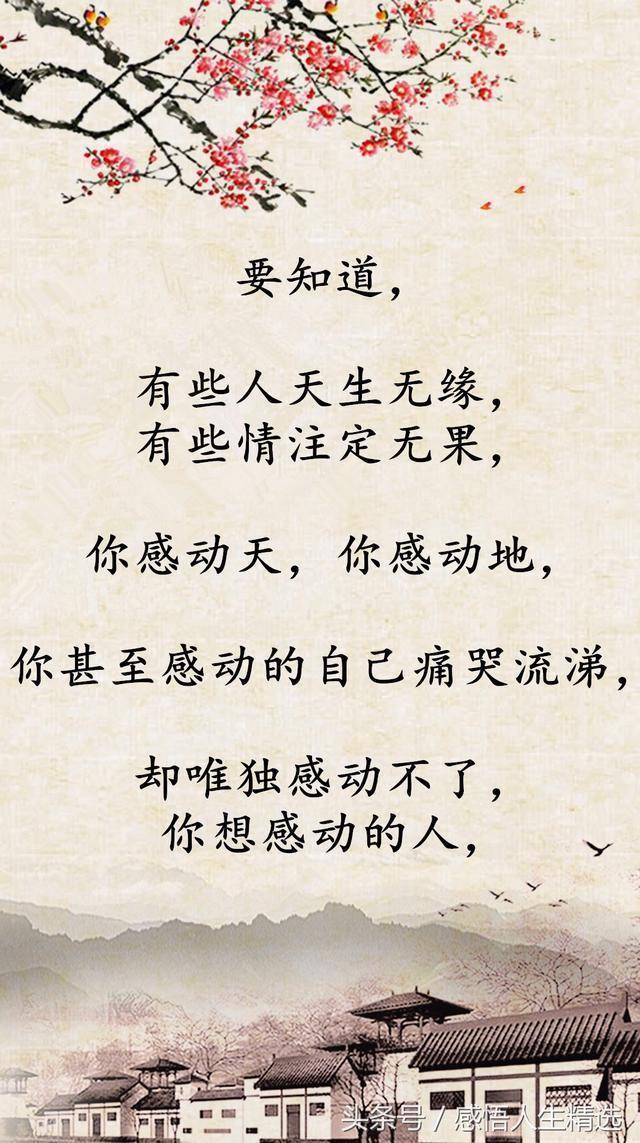 要知道，
有些人天生无缘，
有些情注定无果，
你感动天，你感动地，
你甚至感动的自己痛哭流涕，
却唯独感动不了，
你想感动的人，
头条号 / 感悟人生精选